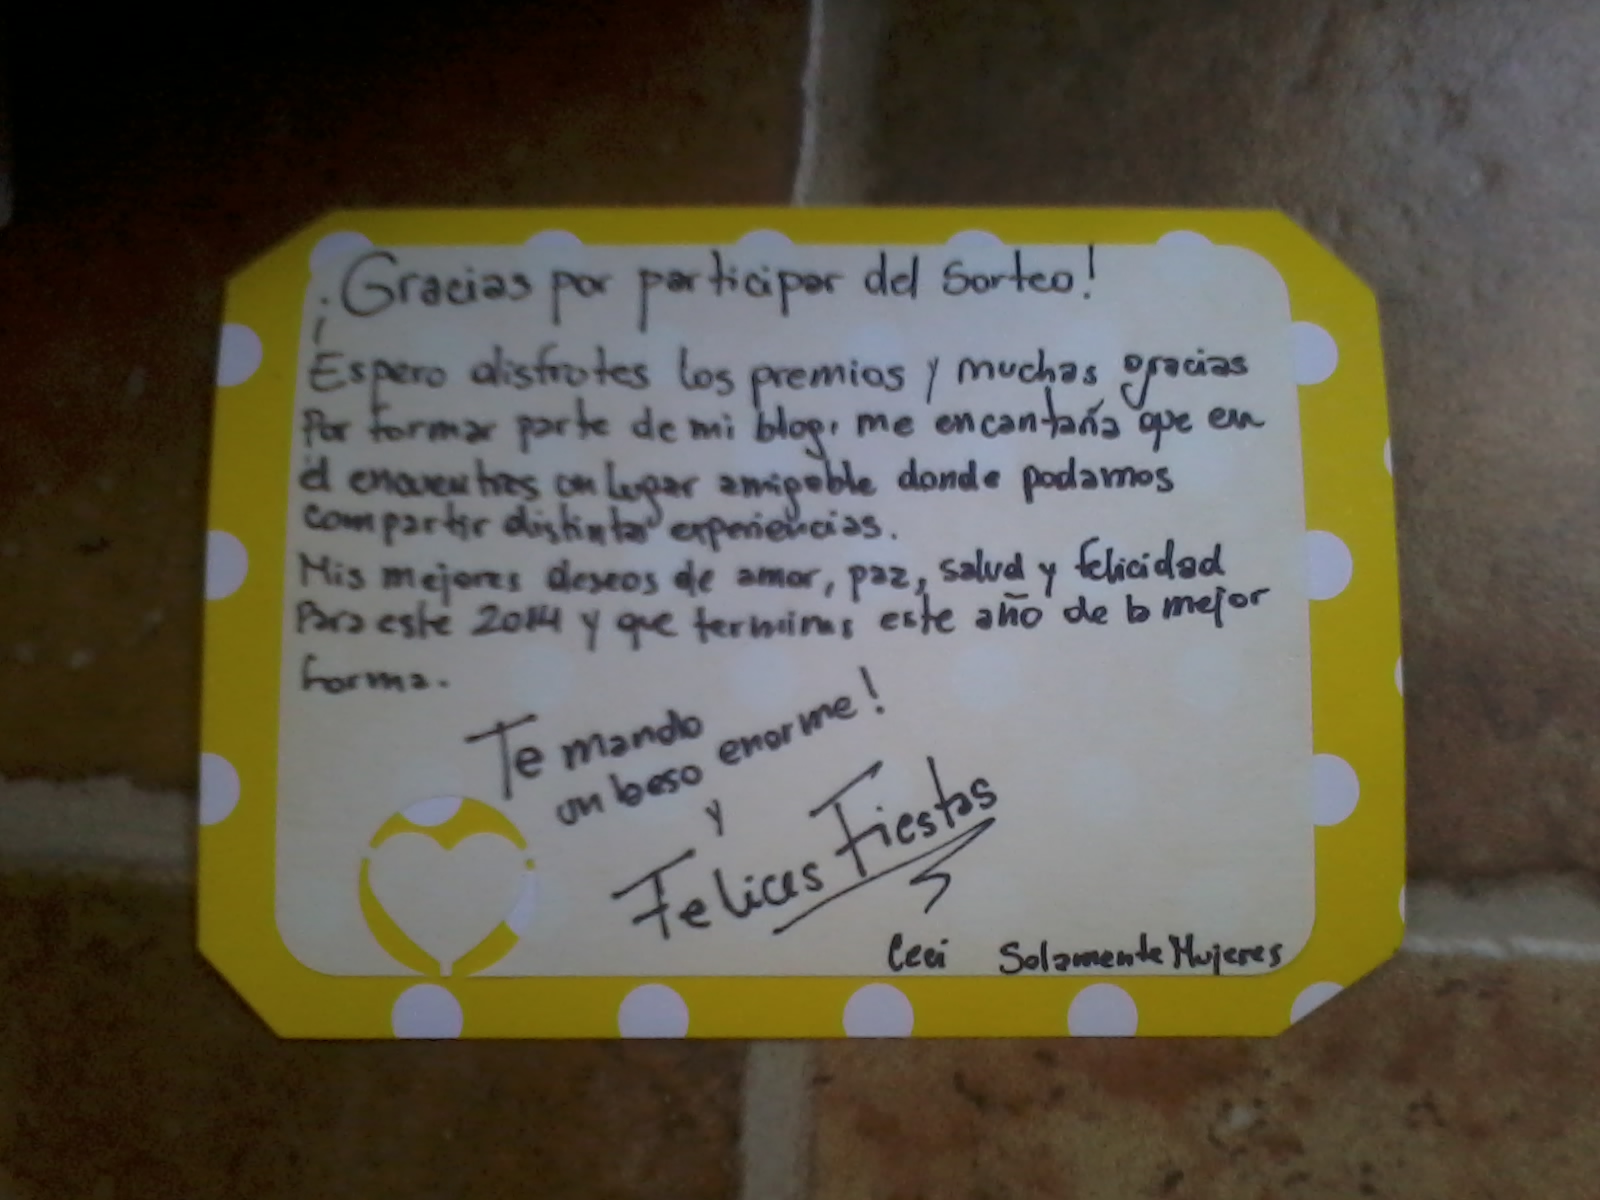 ¡Gracias por participar del Sorteo!
Espero disfrutes los premios y muchas gracias
Por formar parte de mi blog, me encantaría que en
él encuentres un lugar amigable donde podamos
compartir distintas experiencias.
Mis mejores deseos de amor, paz, salud y felicidad
Para este 2014 y que termines este año de la mejor
forma.
Te mando
un beso enorme!
y
Felices Fiestas
Ceci SolamenteMujeres